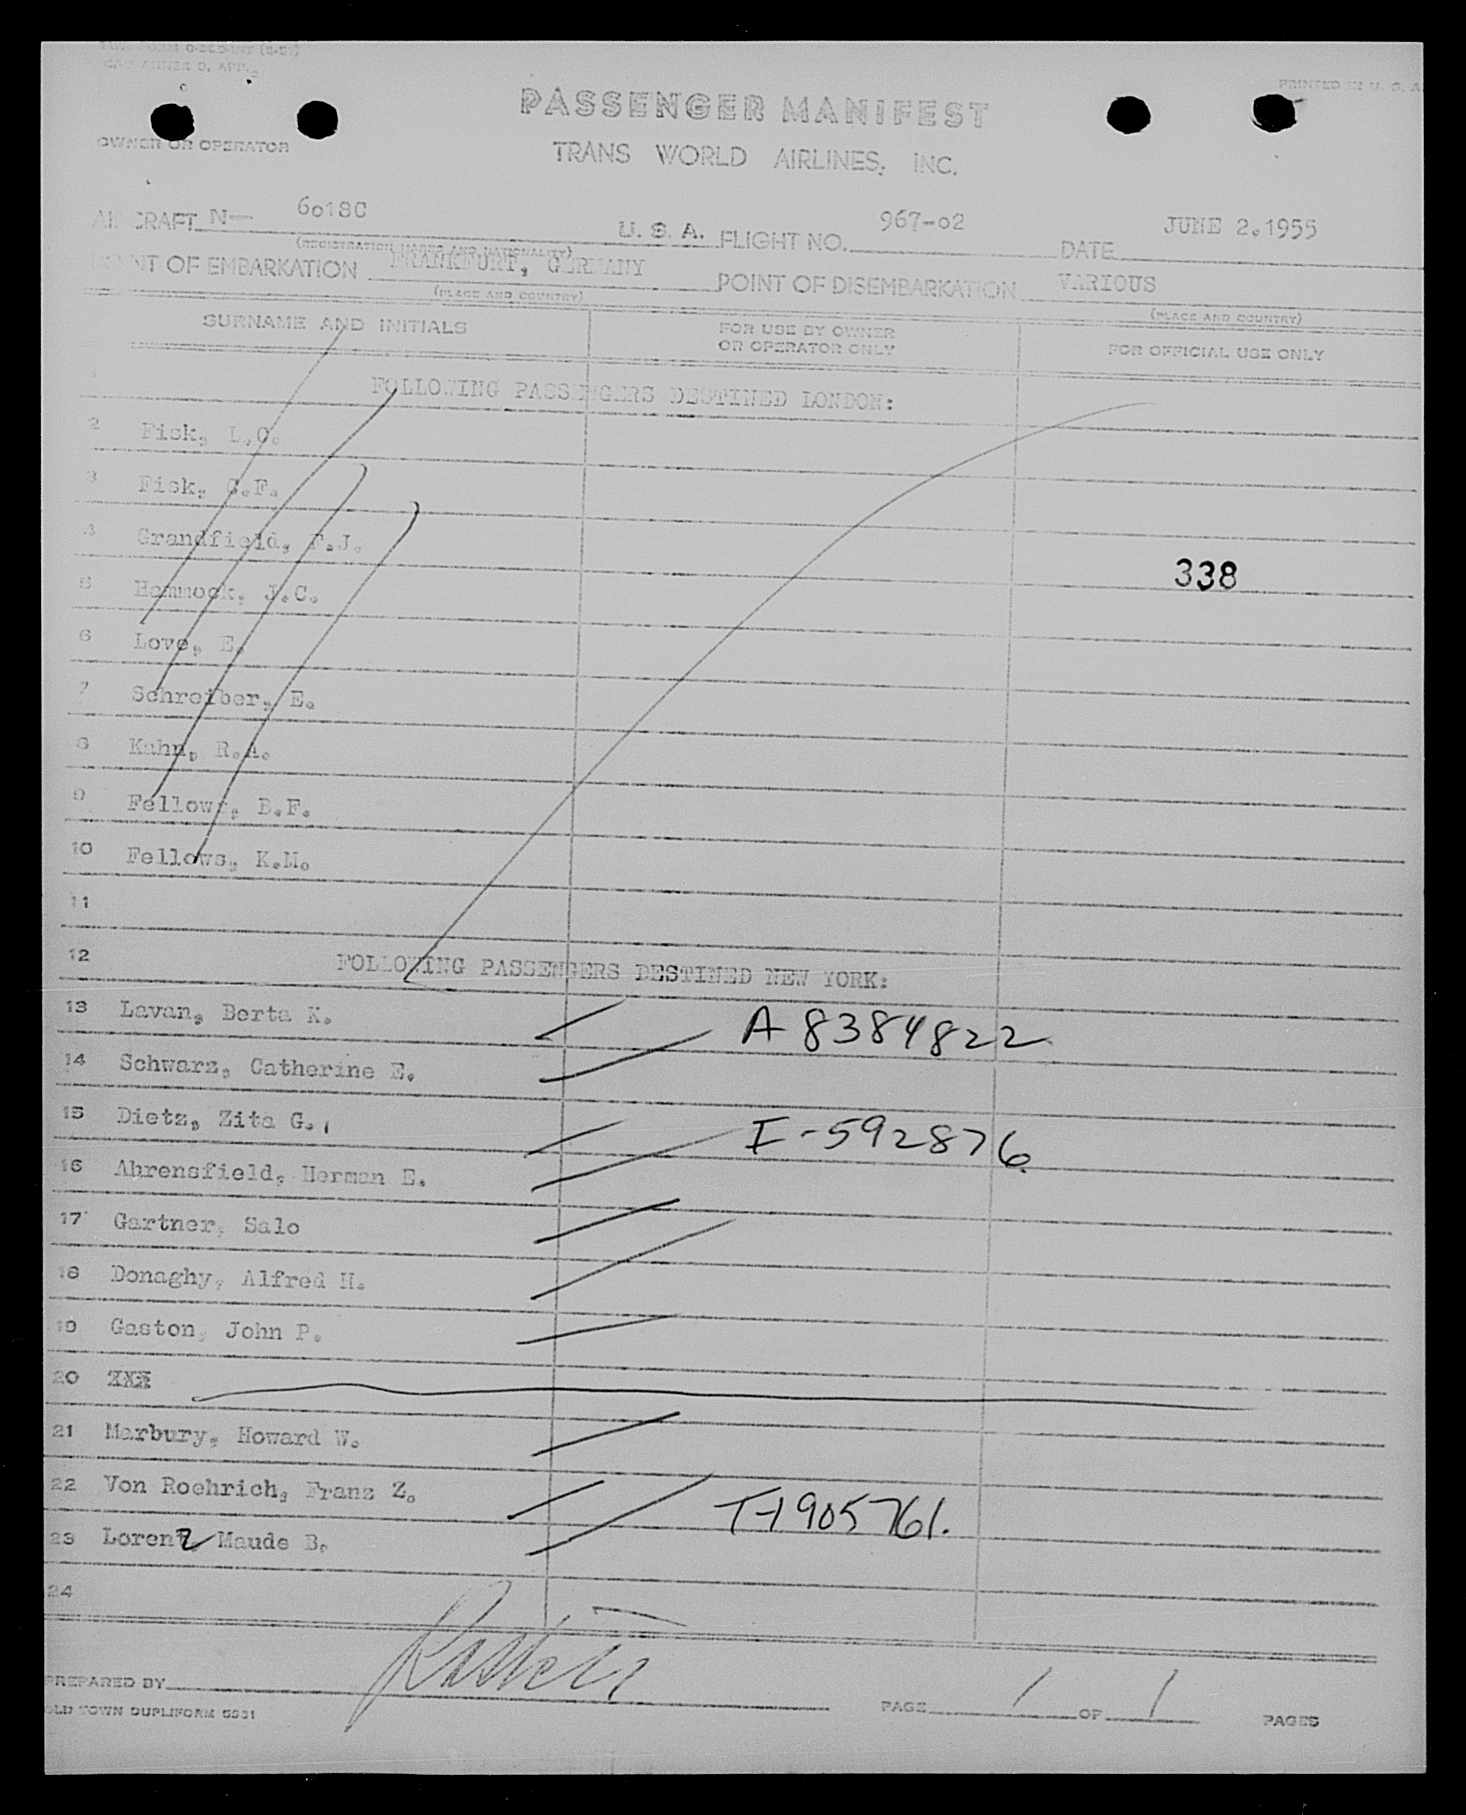 PRINTED IN U. S. A.
PASSENGER MANIFEST
OWNER OR OPERATOR
TRANS WORLD AIRLINES, INC.
AIRCRAFT N— 6018C U. S. A. FLIGHT NO. 967-02 DATE JUNE 2.1955
(REGISTRATION MARKS AND NATIONALITY)
POINT OF EMBARKATION FRANKFURT, GERMANY POINT OF DISEMBARKATION VARIOUS
(PLACE AND COUNTRY) (PLACE AND COUNTRY)
SURNAME AND INITIALS FOR USE BY OWNER OR OPERATOR ONLY FOR OFFICIAL USE ONLY
FOLLOWING PASSENGERS DESTINED LONDON:
2 Fisk, L.C.
3 Fisk, C.F.
4 Grandfield, F.J.
338
5 Hammock, J.C.
6 Love, E.
7 Schreiber, E.
8 Kuhn, R.A.
9 Fellows, B.F.
10 Fellows, K.M.
11
12 FOLLOWING PASSENGERS DESTINED NEW YORK:
13 Lavan, Berta K. A 8384822
14 Schwarz, Catherine E.
15 Dietz, Zita G. I-592876
16 Ahrensfield, Herman E.
17 Gartner, Salo
18 Donaghy, Alfred H.
19 Gaston, John P.
20 XXX
21 Marbury, Howard W.
22 Von Roehrich, Franz Z. T-1905761.
23 Lorentz Maude B.
24
PREPARED BY
PAGE 1 OF 1 PAGES
OLD TOWN DUPLIFORM 5531